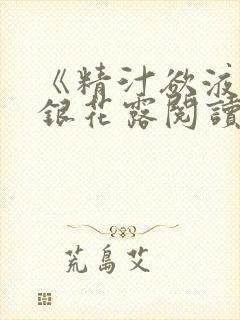 《精汁欲液
銀花露閱讀
荒島艾